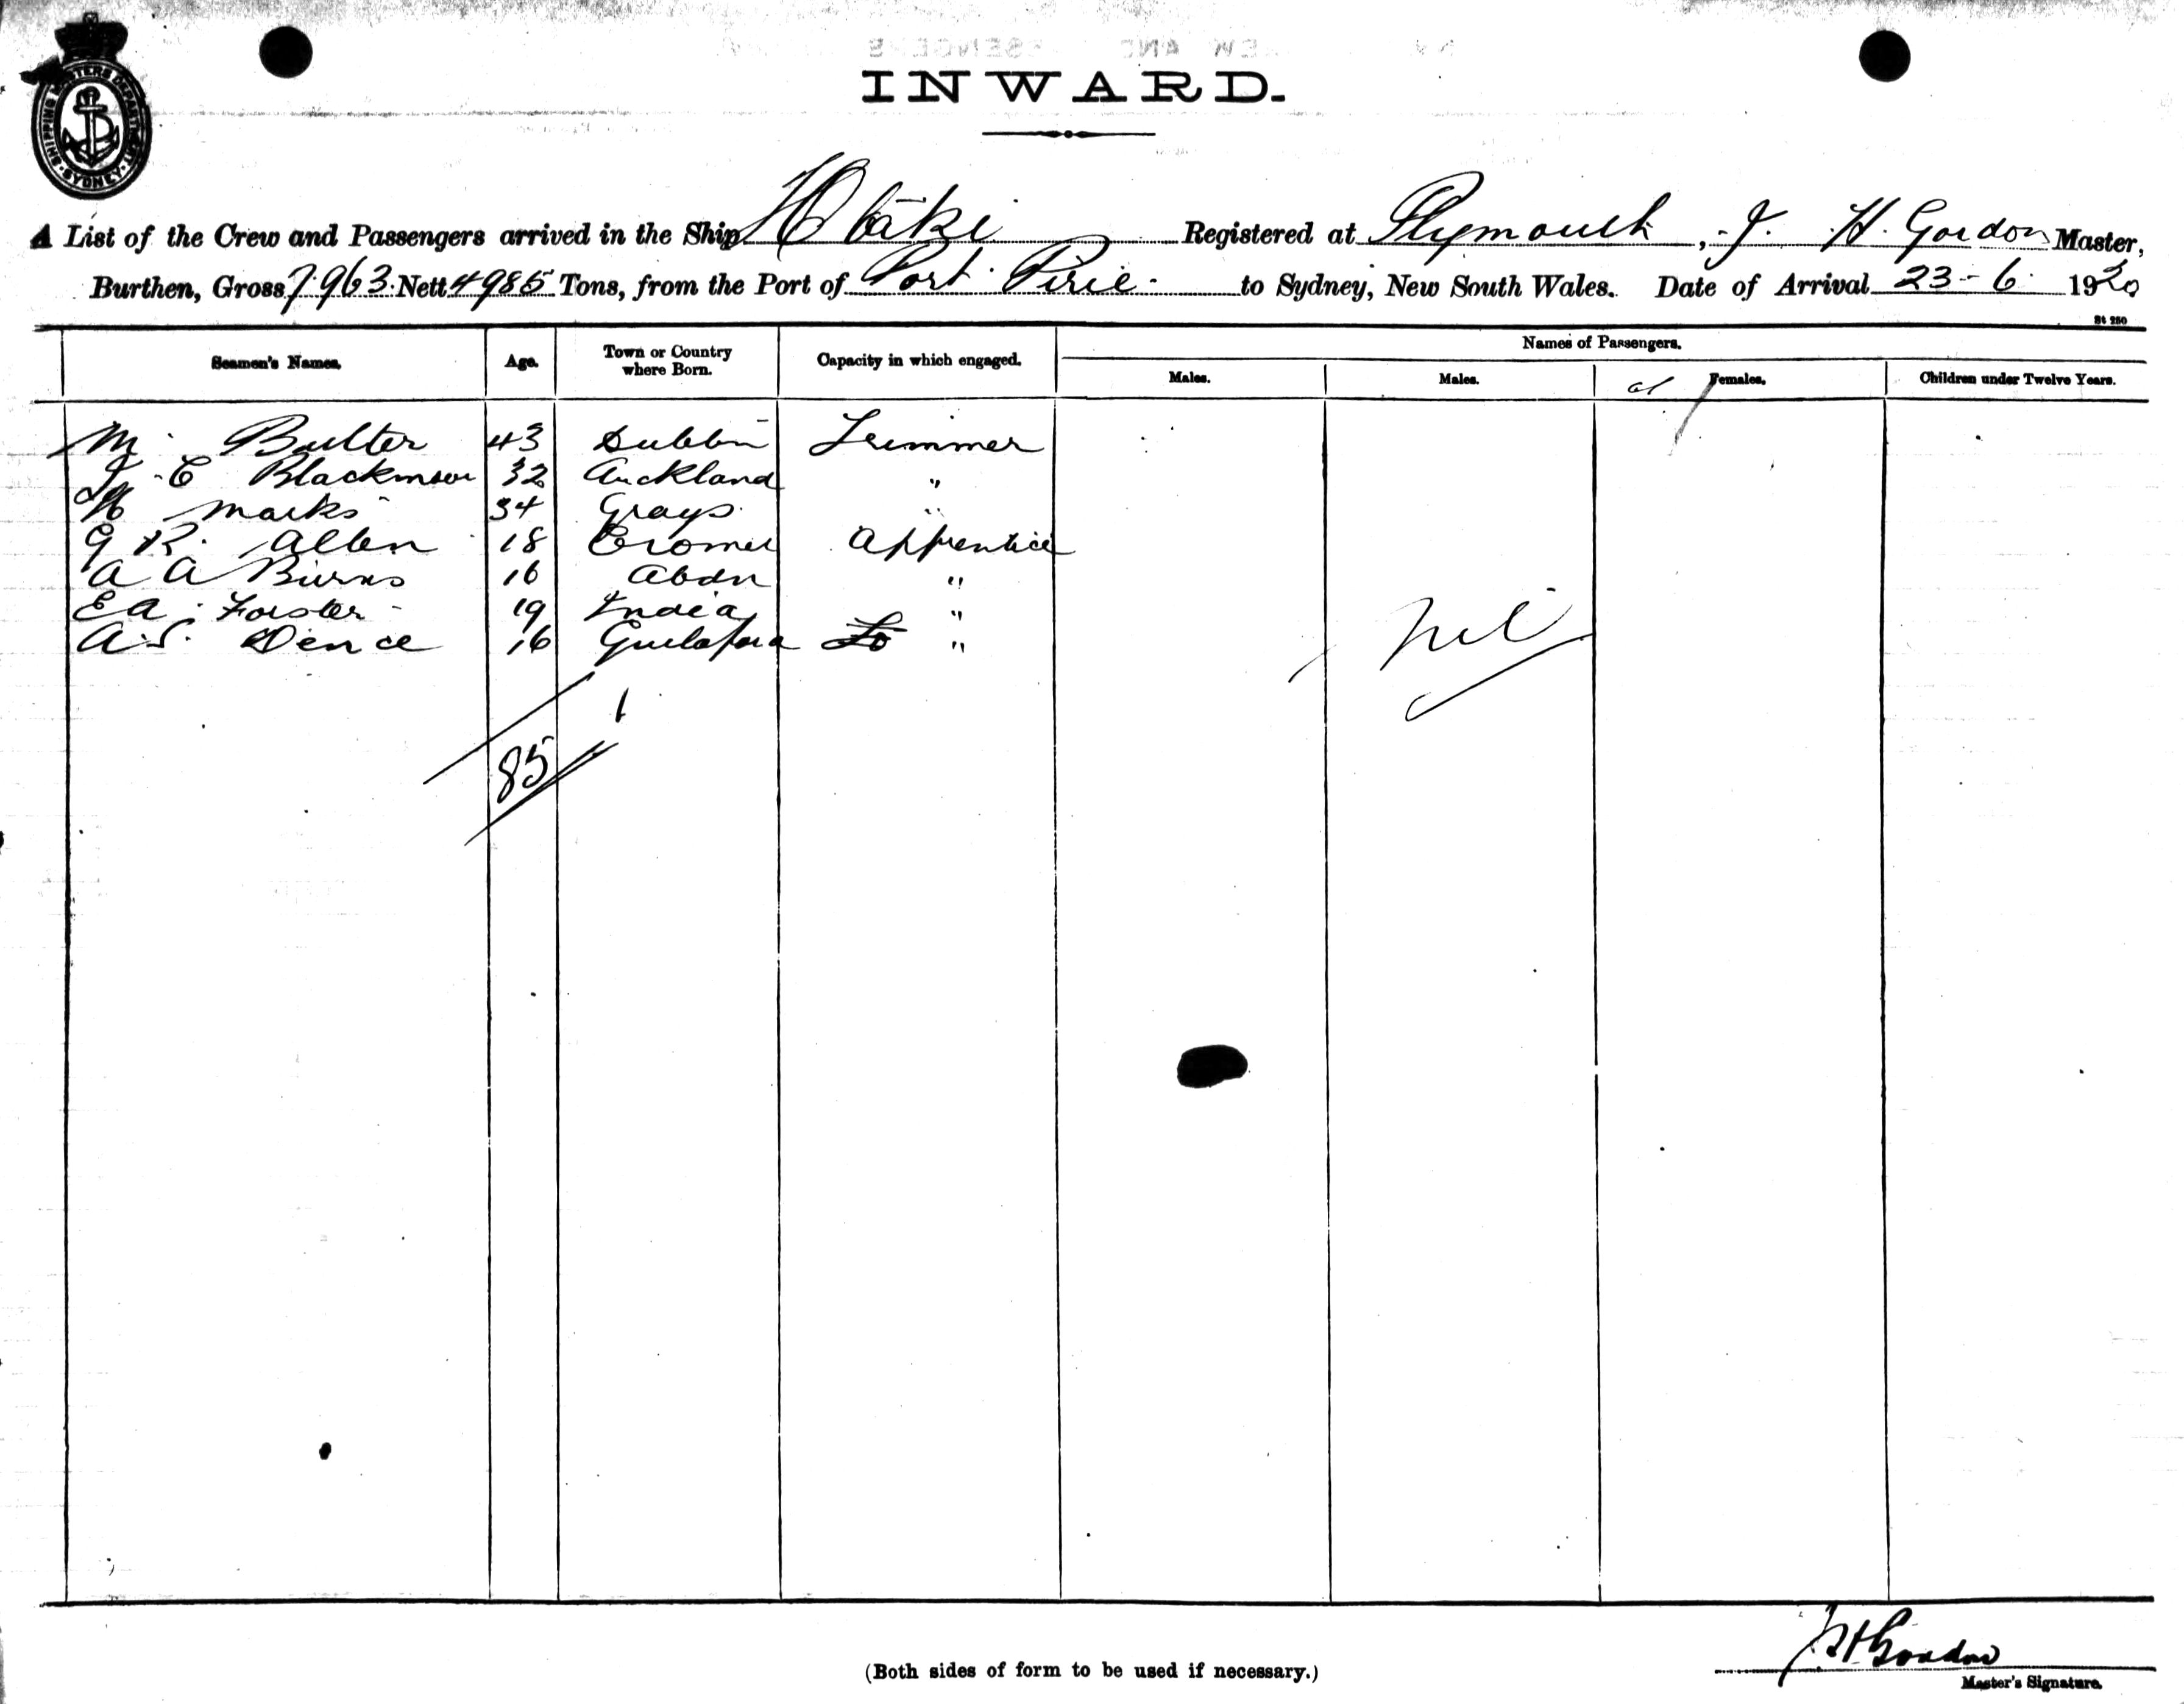 SHIPPING MASTERS DEPARTMENT SYDNEY
INWARD.
A List of the Crew and Passengers arrived in the Ship Otaki Registered at Plymouth, J. H. Gordon Master,
Burthen, Gross 7963 Nett 4985 Tons, from the Port of Port Pirie to Sydney, New South Wales. Date of Arrival 23-6 1920
St 250
Seamen's Names. Age. Town or Country where Born. Capacity in which engaged. Names of Passengers.
Males. Males. Females. Children under Twelve Years.
M Butler 43 Dublin Trimmer
E Blackmore 32 Auckland "
Marks 34 Grays "
G R. Allen 18 Cromer Apprentice
A A Burns 16 Abdn "
E A. Forster 19 India "
A. S. Dence 16 Guildford "
Nil
1
85
J H Gordon
(Both sides of form to be used if necessary.)
Master's Signature.